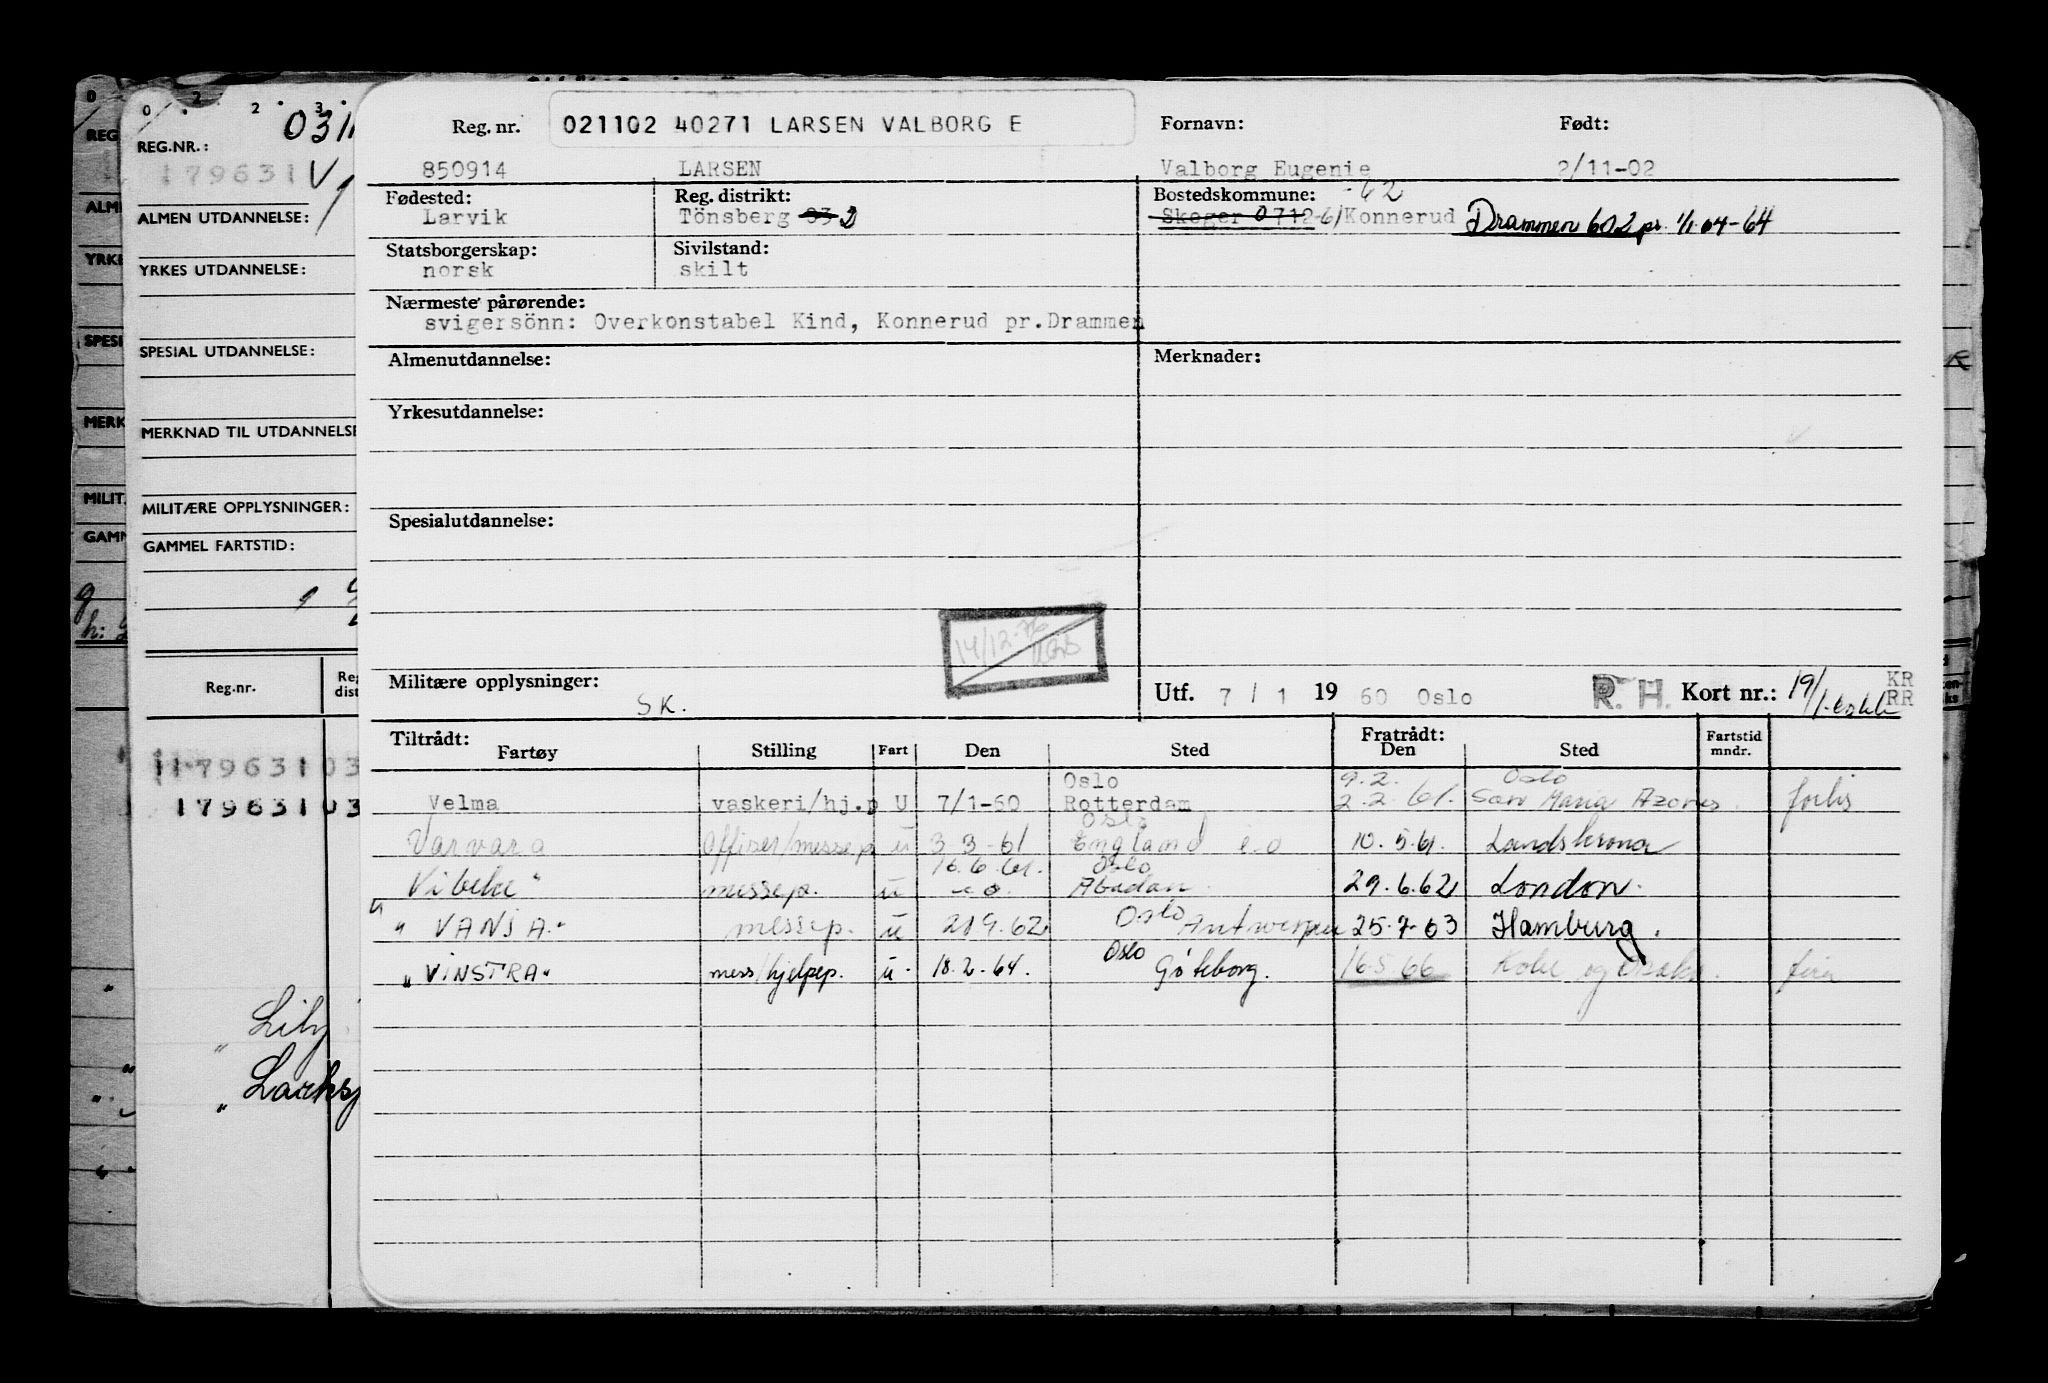 Reg. nr. 021102 40271 LARSEN VALBORG E Fornavn: Født:
850914 LARSEN Valborg Eugenie 2/11-02
Fødested: Reg. distrikt: Bostedskommune: -62
Larvik Tönsberg 03 2 Skoger 0712-61 Konnerud Drammen 602 pr. 1/1 04-64
Statsborgerskap: Sivilstand:
norsk skilt
Nærmeste pårørende:
svigersönn: Overkonstabel Kind, Konnerud pr.Drammen
Almenutdannelse: Merknader:
Yrkesutdannelse:
Spesialutdannelse:
14/12-76
Militære opplysninger: SK.
Utf. 7 / 1 19 60 Oslo R. H. Kort nr.: 19/1 KR
RR
Tiltrådt: Fratrådt: Fartstid
Fartøy Stilling Fart Den Sted Den Sted mndr.
Oslo 9.2. Oslo
Velma vaskeri/hj.p U 7/1-60 Rotterdam 2.2.61. San Maria Azores forlis
Oslo
Varvara Offiser/messep u 3-3-61 England e.o 10.5.61. Landskrona
16.6.61. Oslo
Vibeke " messep. u e.o. Abadan. 29.6.62 London.
" VANJA." messep. u 219.62 Oslo Antwerpen 25.7.63 Hamburg.
" VINSTRA" mess/hjelpep. u. 18.2.64. Oslo Göteborg. 16.5.66 Kobe og Osaka.
REG.NR.: 0311
179631 V
ALMEN UTDANNELSE:
YRKES UTDANNELSE:
SPESIAL UTDANNELSE:
MERKNAD TIL UTDANNELSE
MILITÆRE OPPLYSNINGER:
GAMMEL FARTSTID:
Reg.nr. Reg
dist
179631 03
179631 03
" Lily
" Larksp
REG
ALME
YRKE
SPESI
MERK
MILIT.
GAMM